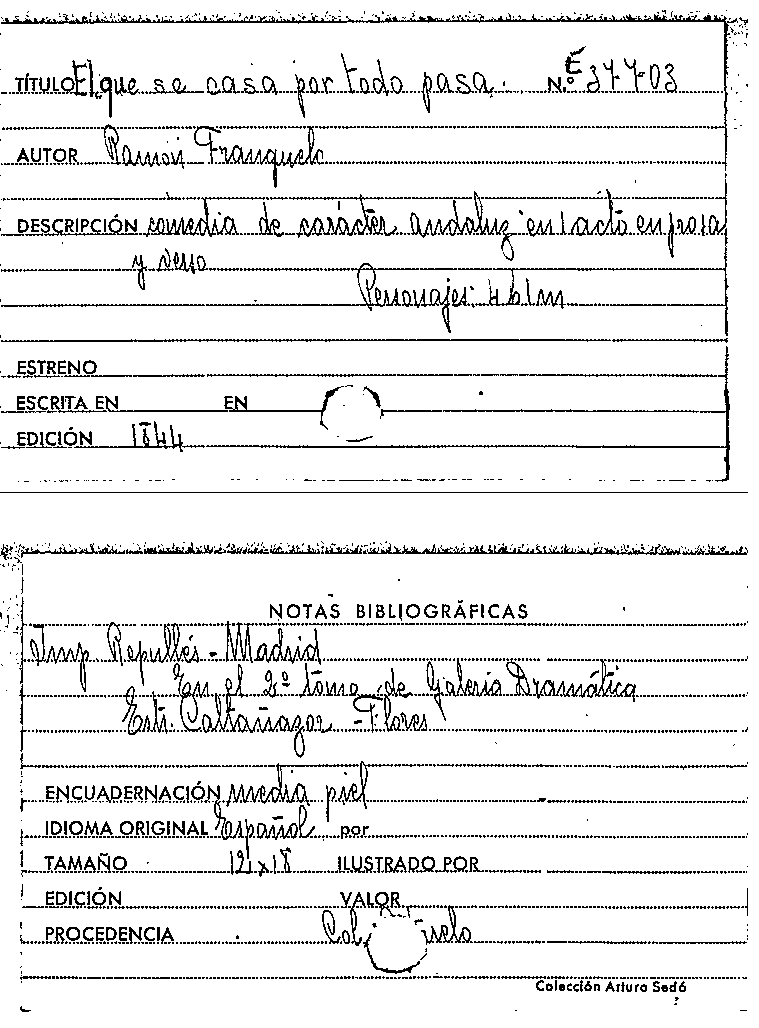 TÍTULO El que se casa por todo pasa. N.º E 377-03
AUTOR Ramón Franquelo
DESCRIPCIÓN comedia de carácter andaluz en 1 acto en prosa
y verso
Personajes: 4 h 1 m
ESTRENO
ESCRITA EN EN
EDICIÓN 1844
NOTAS BIBLIOGRÁFICAS
Imp Repullés - Madrid
En el 2º tomo de Galería Dramática
Estr. Caltañazor - Flores
ENCUADERNACIÓN media piel
IDIOMA ORIGINAL Español por
TAMAÑO 12x18 ILUSTRADO POR
EDICIÓN VALOR
PROCEDENCIA Col.
Colección Arturo Sedó